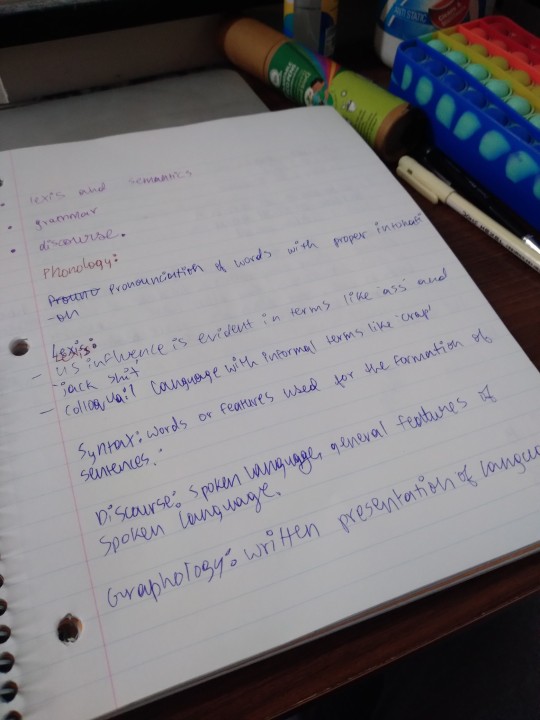 ANTI STATIC
lexis and semantics
grammar
discourse.
Phonology:
Pronounciation of words with proper intonati
-on
Lexis:
- US influence is evident in terms like 'ass' and
'jack shit'
- colloquail language with informal terms like 'crap'
Syntax: words or features used for the formation of
sentences.
Discourse: Spoken Language, general features of
Spoken Language.
Graphology: written presentation of langua